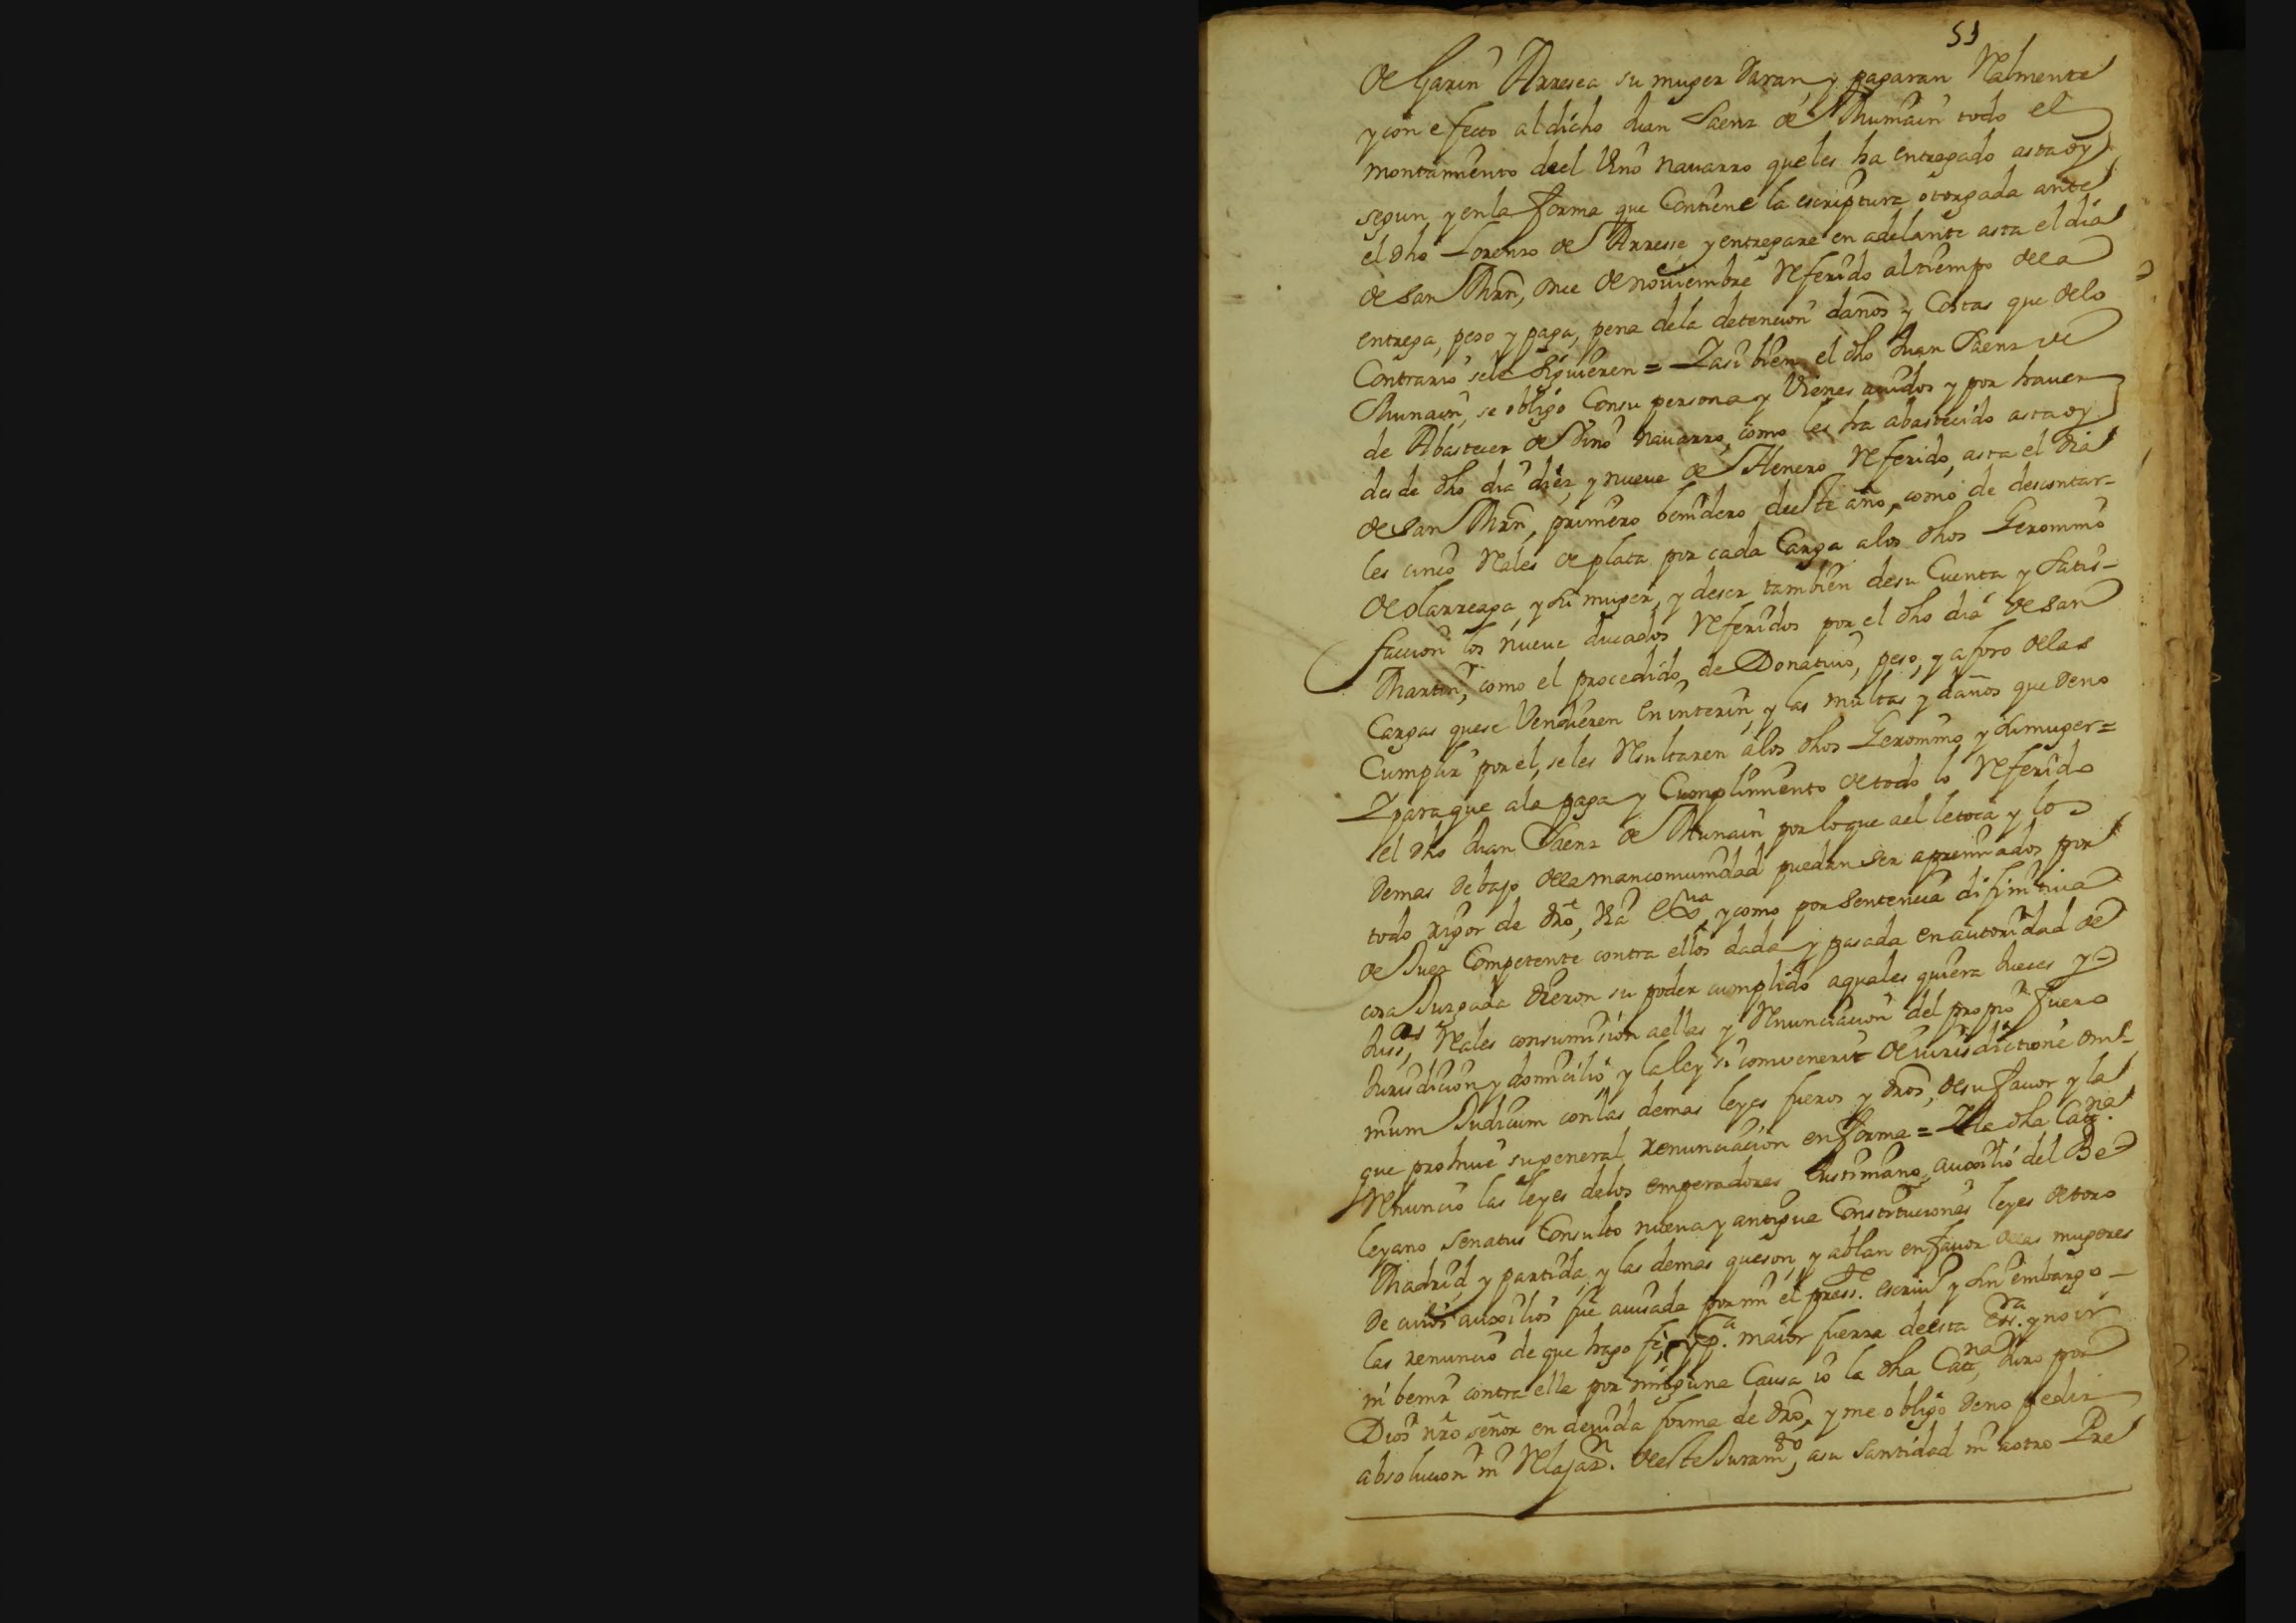 51
de Garin Arresea su muger daran, y pagaran Realmente
y con efecto al dicho Juan Saenz de Munain todo el
montamiento deel Vino navarro que les ha entregado asta oy
segun y en la forma que Contiene la escriptura otorgada ante
el dho Lorenzo de Arresse, y entregare en adelante asta el dia
de san Mrn, onze de noviembre Referido al tiempo dela
entrega, peso y paga, pena dela detencion daños y Costas que delo
Contrario sele siguieren = Y asi bien el dho Juan Saenz de
Munain, se obligo Consu persona y Vienes avidos y por haver
de Abastecer de Vino navarro, como les ha abastecido asta oy
desde dho dia diez y nueve de Henero Referido, asta el dia
de san Mrn, primero benidero deeste año, como de descontar-
les cinco Reales de plata por cada Carga alos dhos Geronimo
de olarreaga, y su muger, y deser tambien desu Cuenta y satis-
facion los nueve ducados Referidos por el dho dia de san
Martin, como el procedido, de Donativo, peso, y aforo delas
Cargas quese Vendieren en interin, y las multas y daños que deno
Cumplir por el, seles Resultaren alos dhos Geronimo y su muger =
Y para que ala paga y Cumplimiento de todo lo Referido
el dho Juan Saenz de Munain por lo que ael le toca y los
demas debajo dela mancomunidad puedan ser apremiados por
todo rigor de dro, Via exva y como por sentencia difinitiva
de Juez Competente contra ellos dada y pasada en autoridad de
cosa Juzgada dieron su poder cumplido aquales quiera Jueces y
Juss.as Reales consumision aellas y Renunciacion del propio fuero
Jurisdicion y domicilio y la ley si convenerit de iurisdictione omi-
nium Judicum con las demas leyes fueros y dros, desu favor y la
que prohive su general renunciacion en forma = Y la dha Cata.na
Renuncio las leyes delos emperadores Justiniano, auxilio del Be-
leyano senatus Consulto nueva y antigua Constituciones leyes de toro
Madrid, y partida, y las demas que son, y ablan en favor delas mugeres
de cuios auxilios fue avisada por mi el press.te escriv.o y sin embargo -
las renuncio de que hago fe, y p.a maior fuerza deesta ess.ra y no ir
ni benir contra ella por ninguna Causa io la dha Cat.na, Juro por
Dios nro señor en devida forma de dro, y me obligo deno pedir
absolucion ni Relajaz.n deeste Juram.to, asu santidad ni aotro Pre